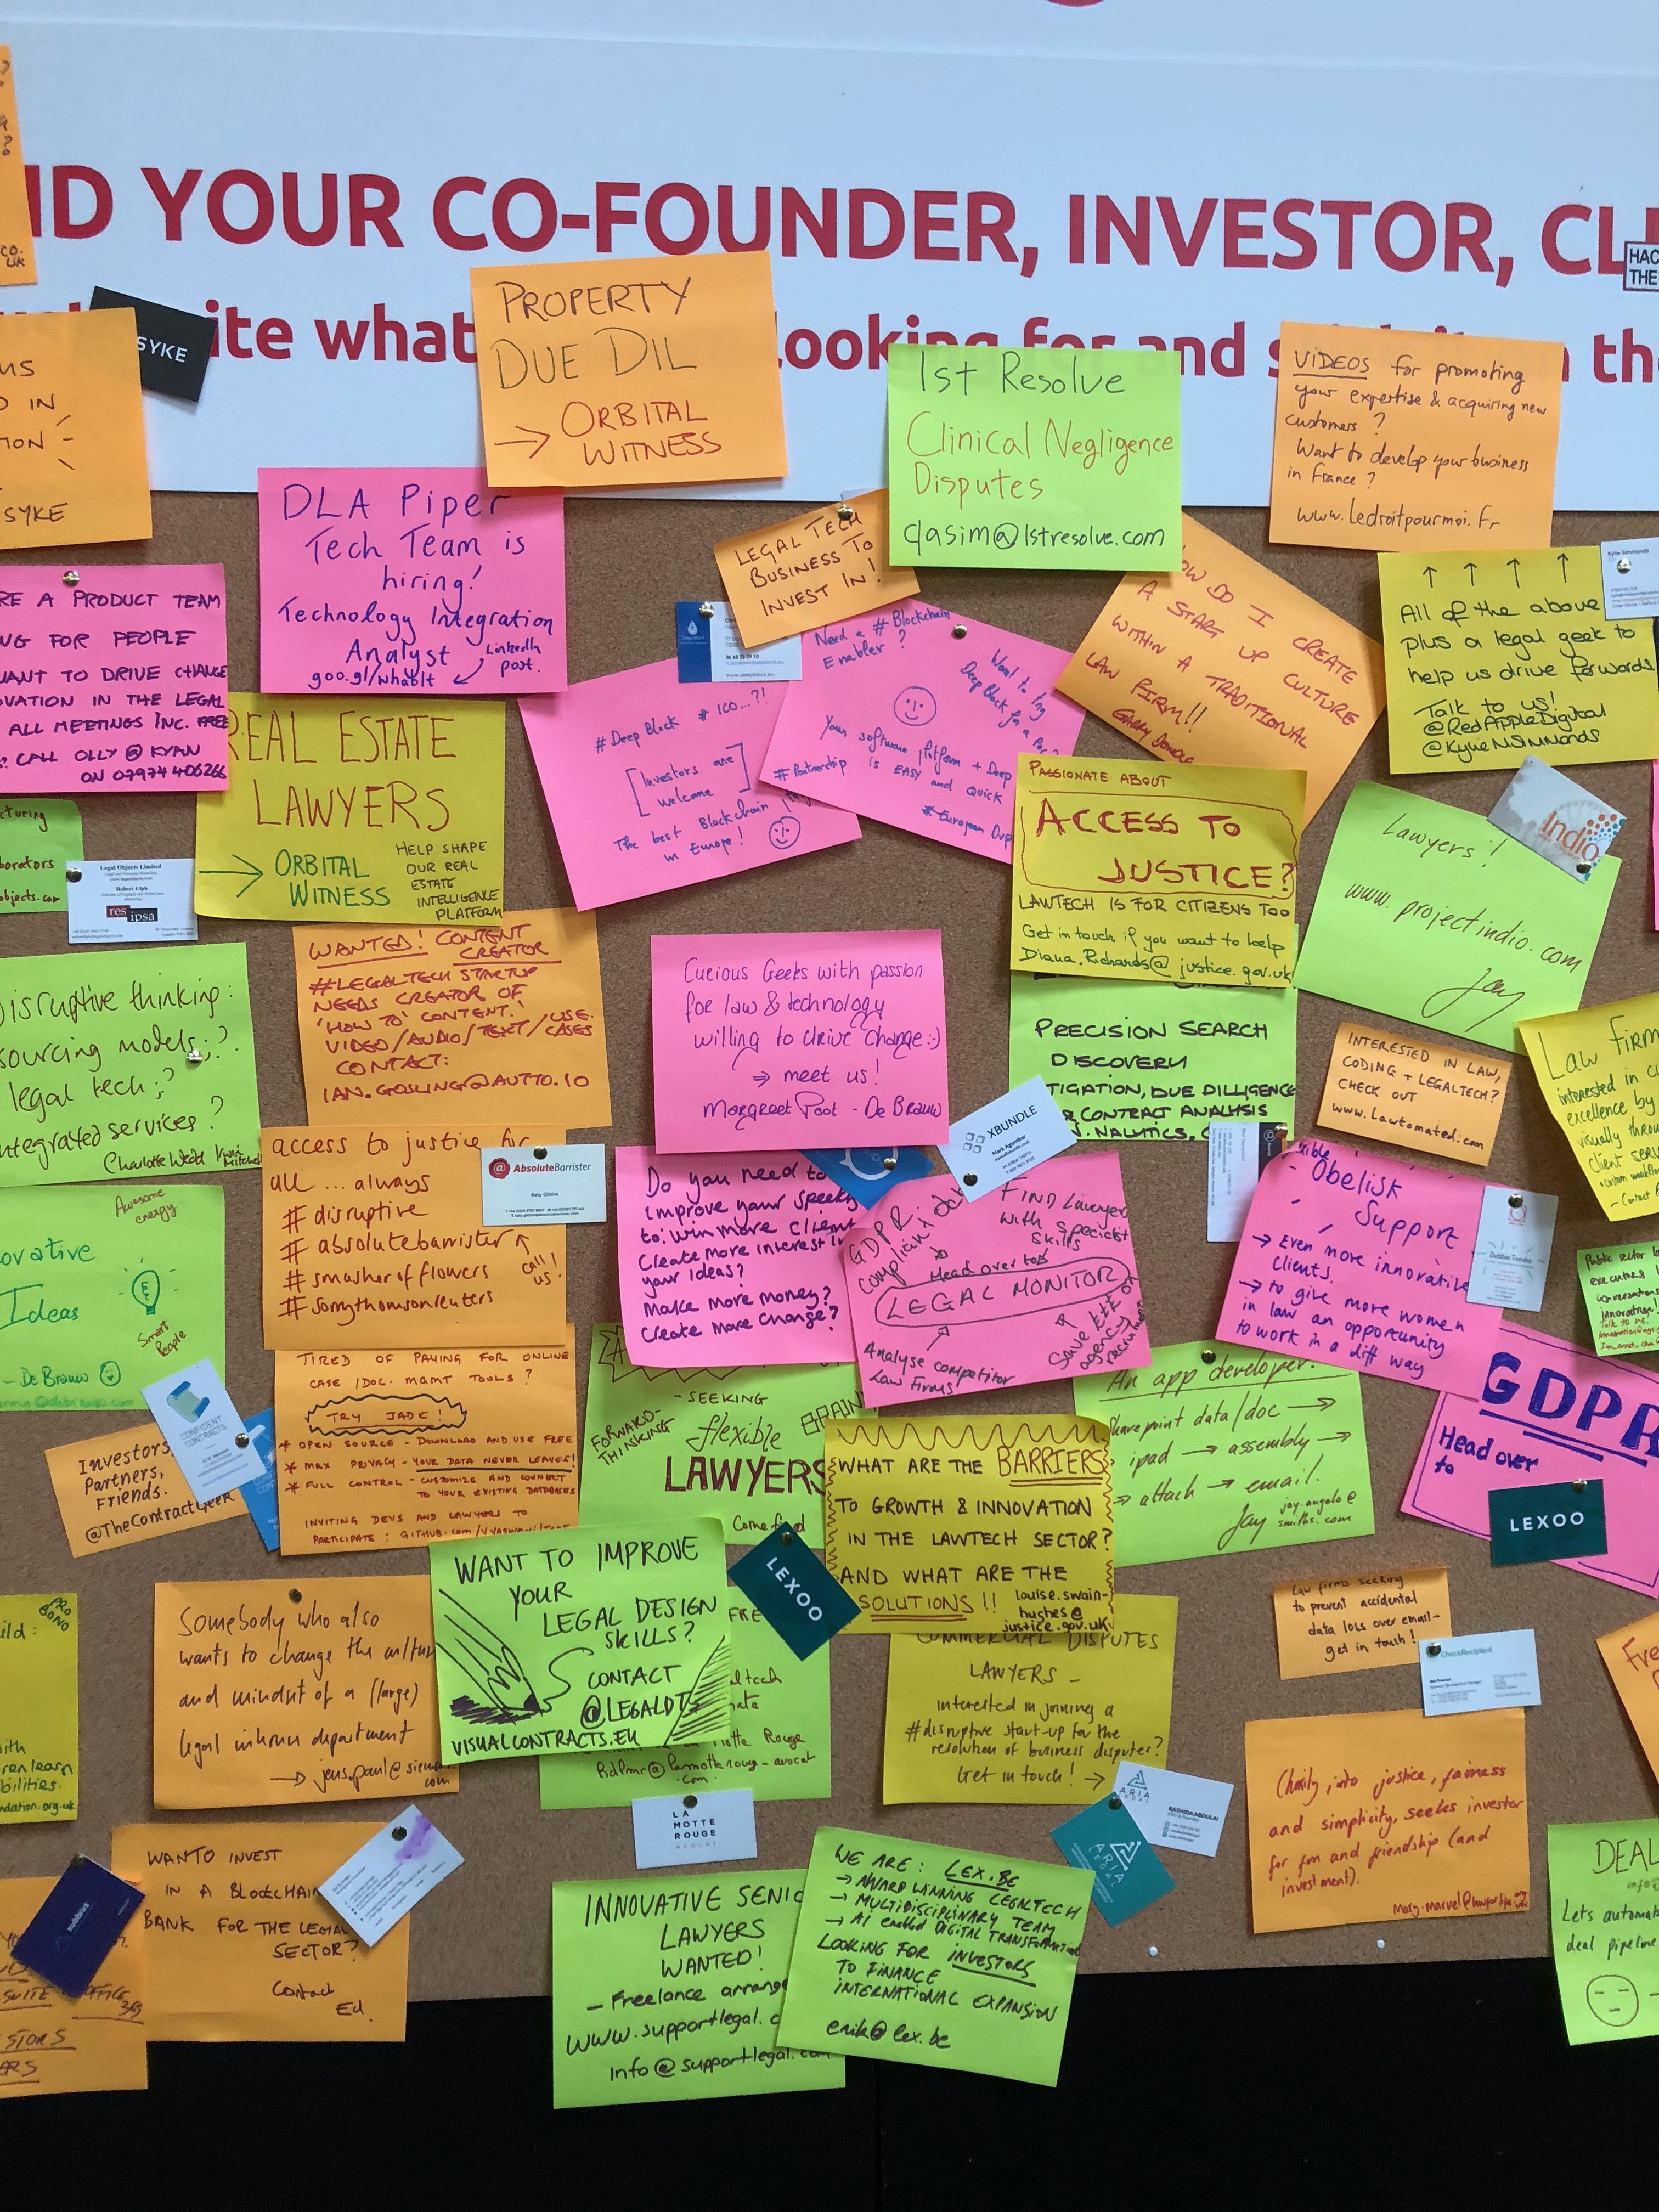 ND YOUR CO-FOUNDER, INVESTOR, CL
HAC
THE
ite what
looking for and
CO.
UK
SYKE
PROPERTY
DUE DIL
→ ORBITAL
WITNESS
1st Resolve
Clinical Negligence
Disputes
qasim@1stresolve.com
VIDEOS for promoting
your expertise & acquiring new
customers?
Want to develop your business
in France?
www.ledroitpourmoi.fr
US
D IN
ION
SYKE
DLA Piper
Tech Team is
hiring!
Technology Integration
Analyst
LinkedIn
post.
LEGAL TECH
BUSINESS TO
INVEST IN!
RE A PRODUCT TEAM
NG FOR PEOPLE
WANT TO DRIVE CHANGE
OVATION IN THE LEGAL
ALL MEETINGS INC. FREE
CALL OLLY @ KYAN
ON 07974 406266
#Deep Block #ICO...?!
[Investors are
welcome]
The best Blockchain
in Europe!
Need a #Blockchain
Enabler?
Want to try
Deep Block for a
Your software platform + Deep
is EASY and quick
#Partnership
#European
HOW DO I CREATE
A START UP CULTURE
WITHIN A TRADITIONAL
LAW FIRM!!
↑ ↑ ↑ ↑
All of the above
plus a legal geek to
help us drive forwards
Talk to us!
@RedAppleDigital
@KylieNSimmonds
Kylie Simmonds
REAL ESTATE
LAWYERS
→ ORBITAL
WITNESS
HELP SHAPE
OUR REAL
ESTATE
INTELLIGENCE
PLATFORM
cturing
borators
objects.com
Legal Objects Limited
Robert Ulph
res ipsa
PASSIONATE ABOUT
ACCESS TO
JUSTICE?
LAWTECH IS FOR CITIZENS TOO
Get in touch if you want to help
Diana.Richards@justice.gov.uk
Indio
Lawyers!
www.projectindio.com
Jay
WANTED! CONTENT
CREATOR
#LEGALTECH STARTUP
NEEDS CREATOR OF
'HOW TO' CONTENT!
VIDEO/AUDIO/TEXT/USE-
CASES
CONTACT:
IAN.GOSLING@AUTTO.IO
Curious Geeks with passion
for law & technology
willing to drive change :)
⇒ meet us!
Margreet Poot - De Brauw
PRECISION SEARCH
DISCOVERY
TIGATION, DUE DILLIGENCE
CONTRACT ANALYSIS
INTERESTED IN LAW,
CODING + LEGALTECH?
CHECK OUT
www.Lawtomated.com
Law firm
interested in
excellence by
visually throu
client serv
Disruptive thinking:
sourcing models;?
legal tech;?
integrated services?
Charlotte
Mitchel
access to justice for
all ... always
# disruptive
# absolutebarrister
# smasherofflowers
# sorrythomsonreuters
call
us!
AbsoluteBarrister
Katy Gittins
Do you need to
improve your speeky
to: win more client
Create more interest in
your ideas?
Make more money?
Create more change?
XBUNDLE
Mark Agombar
GDPR
FIND Lawyers
with specialist
skills
Head over to
LEGAL MONITOR
Analyse competitor
Law Firms
Save £££ on
agency
recruitment
Obelisk
Support
→ Even more innovative
clients.
→ to give more women
in law an opportunity
to work in a diff way
Debbie Tembo
Public sector
Talk to us:
Awesome
energy
ovative
Ideas
Smart
People
- De Brauw
CONFIDENT
CONTRACTS
Investors,
Partners,
Friends.
@TheContractGeek
TIRED OF PAYING FOR ONLINE
CASE/DOC. MGMT TOOLS?
TRY JADE!
* OPEN SOURCE - DOWNLOAD AND USE FREE
* MAX PRIVACY - YOUR DATA NEVER LEAVES!
* FULL CONTROL - CUSTOMIZE AND CONNECT
TO YOUR EXISTING DATABASES
INVITING DEVS AND LAWYERS TO
PARTICIPATE: GITHUB.com/
- SEEKING
FORWARD-
THINKING
flexible
BRAIN
LAWYERS
Come find
WHAT ARE THE BARRIERS
TO GROWTH & INNOVATION
IN THE LAWTECH SECTOR?
AND WHAT ARE THE
SOLUTIONS!!
louise.swain-
hughes@
justice.gov.uk
An app developer.
Sharepoint data/doc →
ipad → assembly →
→ attach → email.
Jay
jay.angelo@
smiths.com
GDPR
Head over
to
LEXOO
WANT TO IMPROVE
YOUR
LEGAL DESIGN
SKILLS?
CONTACT
@LEGALD
VISUALCONTRACTS.EU
LEXOO
FRE
tte Rouge
avocat
.com
LA
MOTTE
ROUGE
AVOCAT
Somebody who also
wants to change the cultur
and mindset of a (large)
legal inhouse department
PRO
BONO
ild:
with
ren learn
bilities.
ndation.org.uk
COMMERCIAL DISPUTES
LAWYERS -
interested in joining a
#disruptive start-up for the
resolution of business disputes?
Get in touch! →
ARIA
RASHIDA ABDULAI
ARIA
LEGAL
Law firms seeking
to prevent accidental
data loss over email -
get in touch!
CheckRecipient
Charity, into justice, fairness
and simplicity, seeks investor
for fun and friendship (and
investment).
WANT TO INVEST
IN A BLOCKCHAIN
BANK FOR THE LEGAL
SECTOR?
Contact
Ed.
INNOVATIVE SENIO
LAWYERS
WANTED!
- Freelance arrange
www.supportlegal.c
info@supportlegal.com
WE ARE: LEX.BE
→ AWARD WINNING LEGALTECH
→ MULTIDISCIPLINARY TEAM
→ AI enabled DIGITAL TRANSFORMATION
LOOKING FOR INVESTORS
TO FINANCE
INTERNATIONAL EXPANSION
erik@lex.be
DEAL
info@
Lets automat
deal pipeline
Fre
SUITE
OFFICE
365
STORS